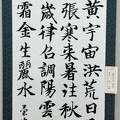 黄宇宙洪荒日
張寒来暑往秋
歳律召調陽雲
霜金生麗水